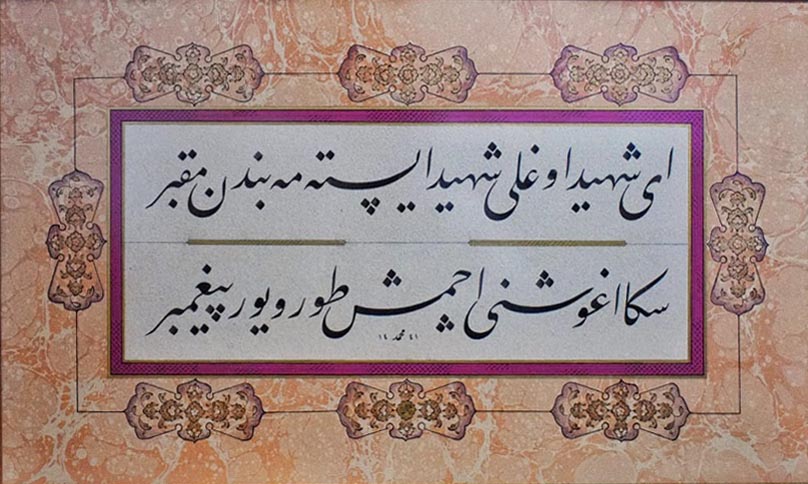 ای شهید اوغلی شهید ایسته مه بندن مقبر
سکا اغوشنی اچمش طورویور پیغمبر
٤١ محمد ١٤